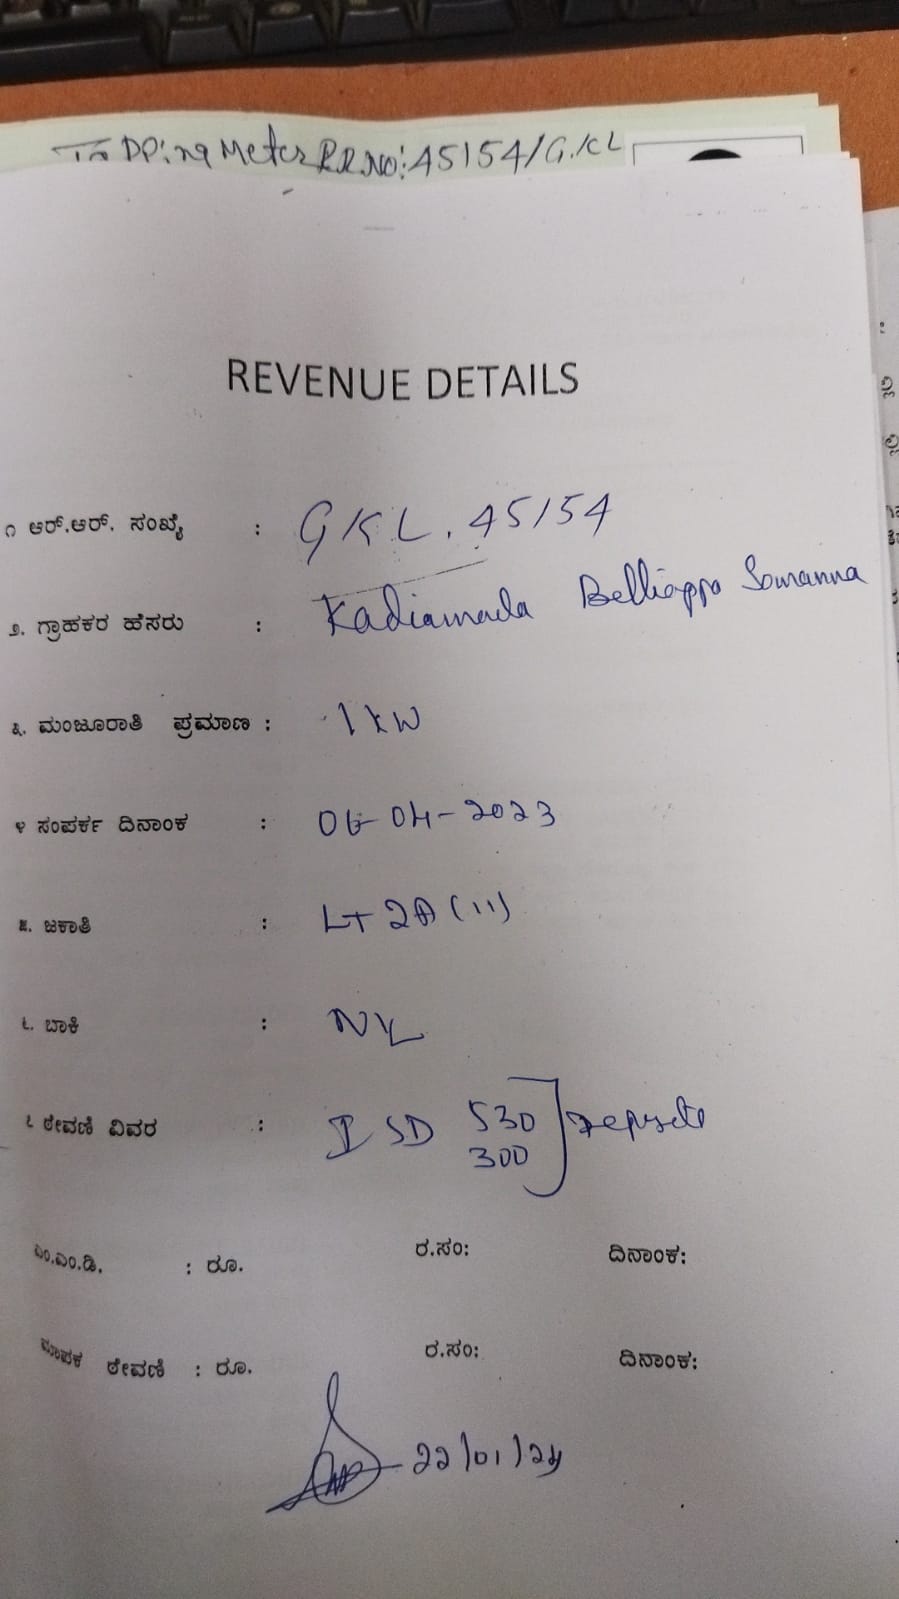 To DPing Meter R.R.NO: 45154/G.KL
REVENUE DETAILS
೧ ಆರ್.ಆರ್. ಸಂಖ್ಯೆ : GKL. 45154
೨. ಗ್ರಾಹಕರ ಹೆಸರು : Kadiamada Belliappa Somanna
೩. ಮಂಜೂರಾತಿ ಪ್ರಮಾಣ : 1 kW
೪ ಸಂಪರ್ಕ ದಿನಾಂಕ : 06-04-2023
೫. ಜಕಾತಿ : LT 2A (ii)
೬. ಬಾಕಿ : NIL
೭ ಠೇವಣಿ ವಿವರ : I SD 530
300
ಎಂ.ಎಂ.ಡಿ. : ರೂ. ರ.ಸಂ: ದಿನಾಂಕ:
ಮಾಪಕ ಠೇವಣಿ : ರೂ. ರ.ಸಂ: ದಿನಾಂಕ:
22/01/24